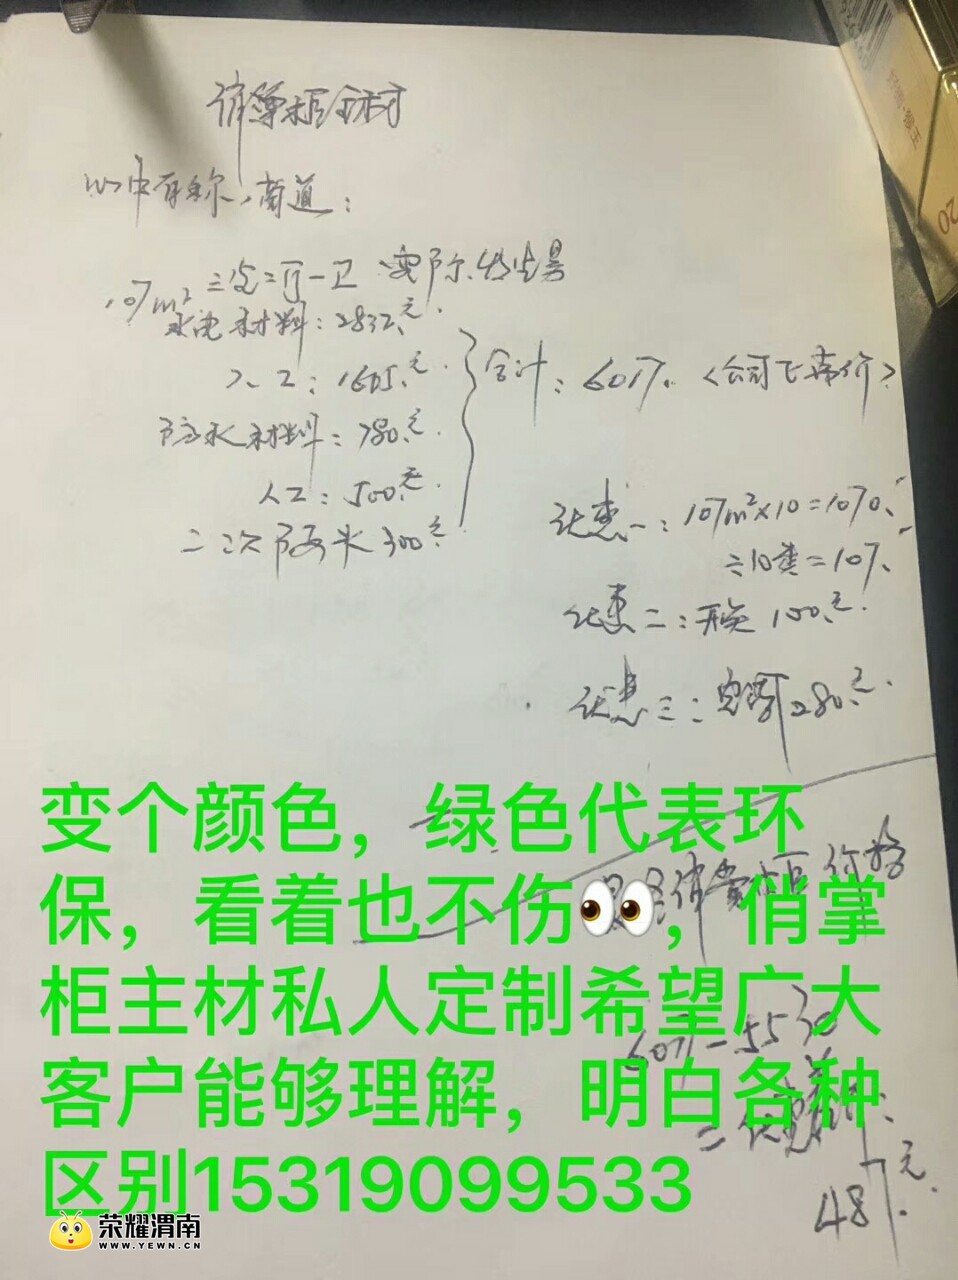 俏掌柜主材
心中有称,有道:
107m² 三室二厅一卫
水电材料:2832元.
人工:1605元.
防水材料:780元.
人工:500元.
二次防水300元
合计:6017. <公司飞单价>
优惠一:107m²×10=1070.
÷10类=107.
优惠二:100元.
优惠三:280元.
俏掌柜价格
6017-5530
=优惠
487元.
变个颜色，绿色代表环
保，看着也不伤👀，俏掌
柜主材私人定制希望广大
客户能够理解，明白各种
区别15319099533
荣耀渭南
WWW.YEWN.CN